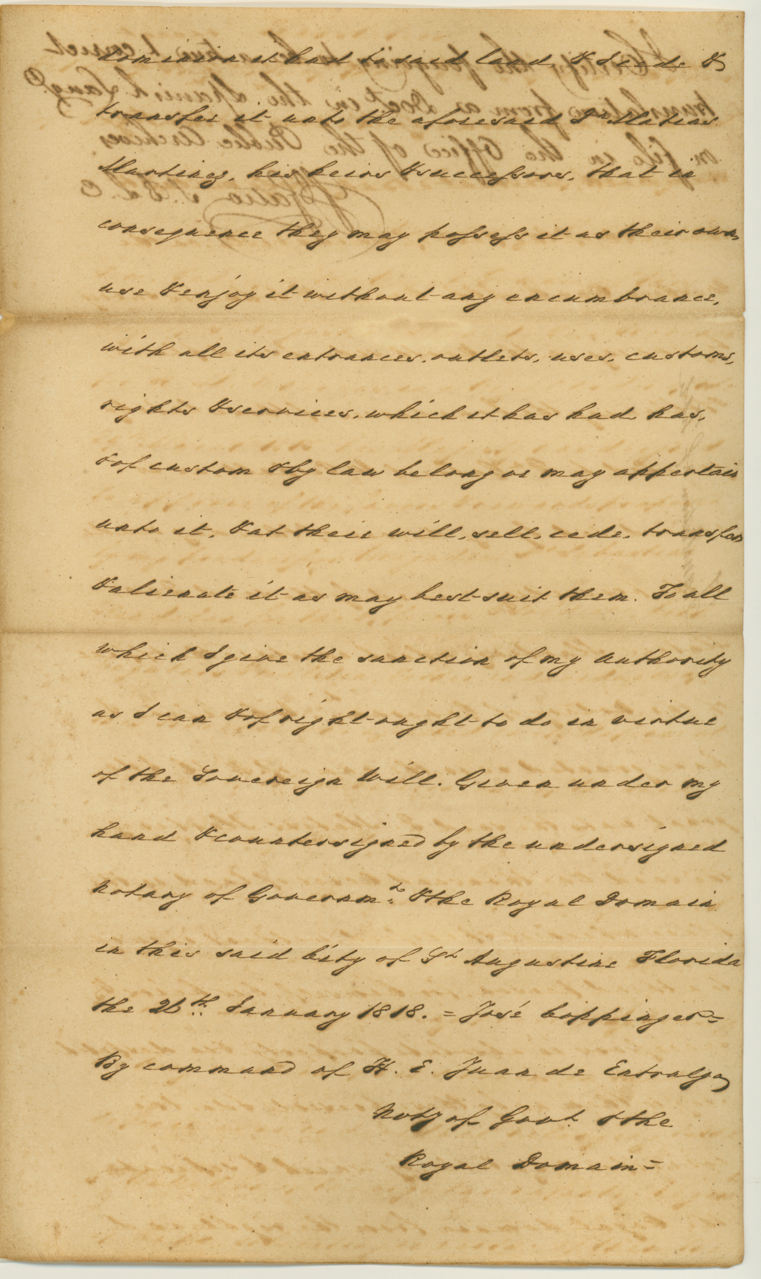 dominion it had to said land, & I cede &
transfer it unto the aforesaid Dn Matias
Martinez, his heirs & successors, that in
consequence they may possess it as their own,
use & enjoy it without any encumbrance,
with all its entrances, outlets, uses, customs,
rights & services, which it has had, has,
& of custom & by law belong or may appertain
unto it, & at their will, sell, cede, transfer
& alienate it as may best suit them. To all
which I give the sanction of my authority
as I can & of right ought to do in virtue
of the Sovereign Will. Given under my
hand & countersigned by the undersigned
Notary of Governmt. & the Royal Domain
in this said City of St Augustine Florida
the 26th. January 1818. = José Coppinger =
By command of H. E. Juan de Entralgo
Noty of Govt. & the
Royal Domain =
I Certify the foregoing to be a true & correct
translation from a Doct in the Spanish Lange.
on file in the Office of the Public Archives